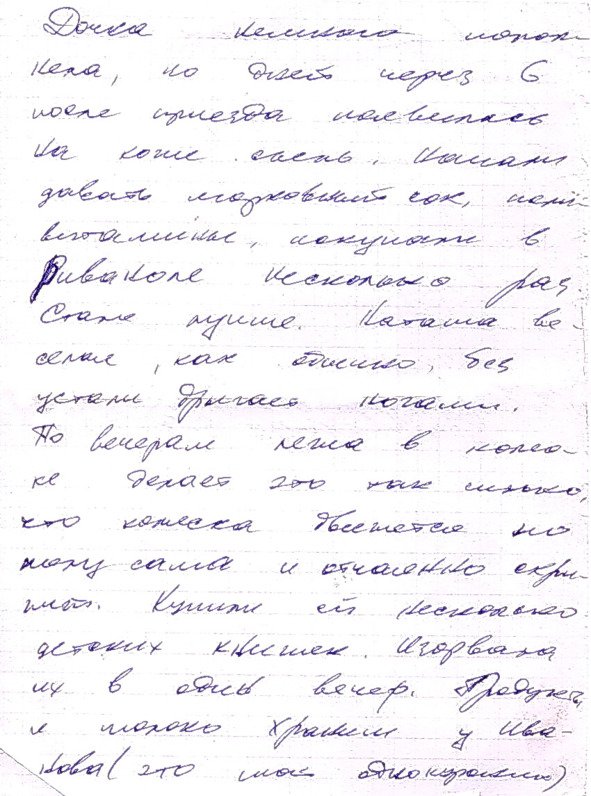 Дочка немного попол-
нела, но дней через 6
после приезда появилась
на коже сыпь. Начали
давать морковный сок, поли-
витамины, покупали в
Риваноле несколько раз.
Стало лучше. Наташа ве-
селая, как обычно, без
устали дрыгает ногами.
По вечерам лежа в коляс-
ке делает это так сильно,
что коляска движется по
полу сама и отчаянно скри-
пит. Купили ей несколько
детских книжек. Изорвала
их в один вечер. Продукты
и молоко храним у Ива-
нова (это мой однокурсник)